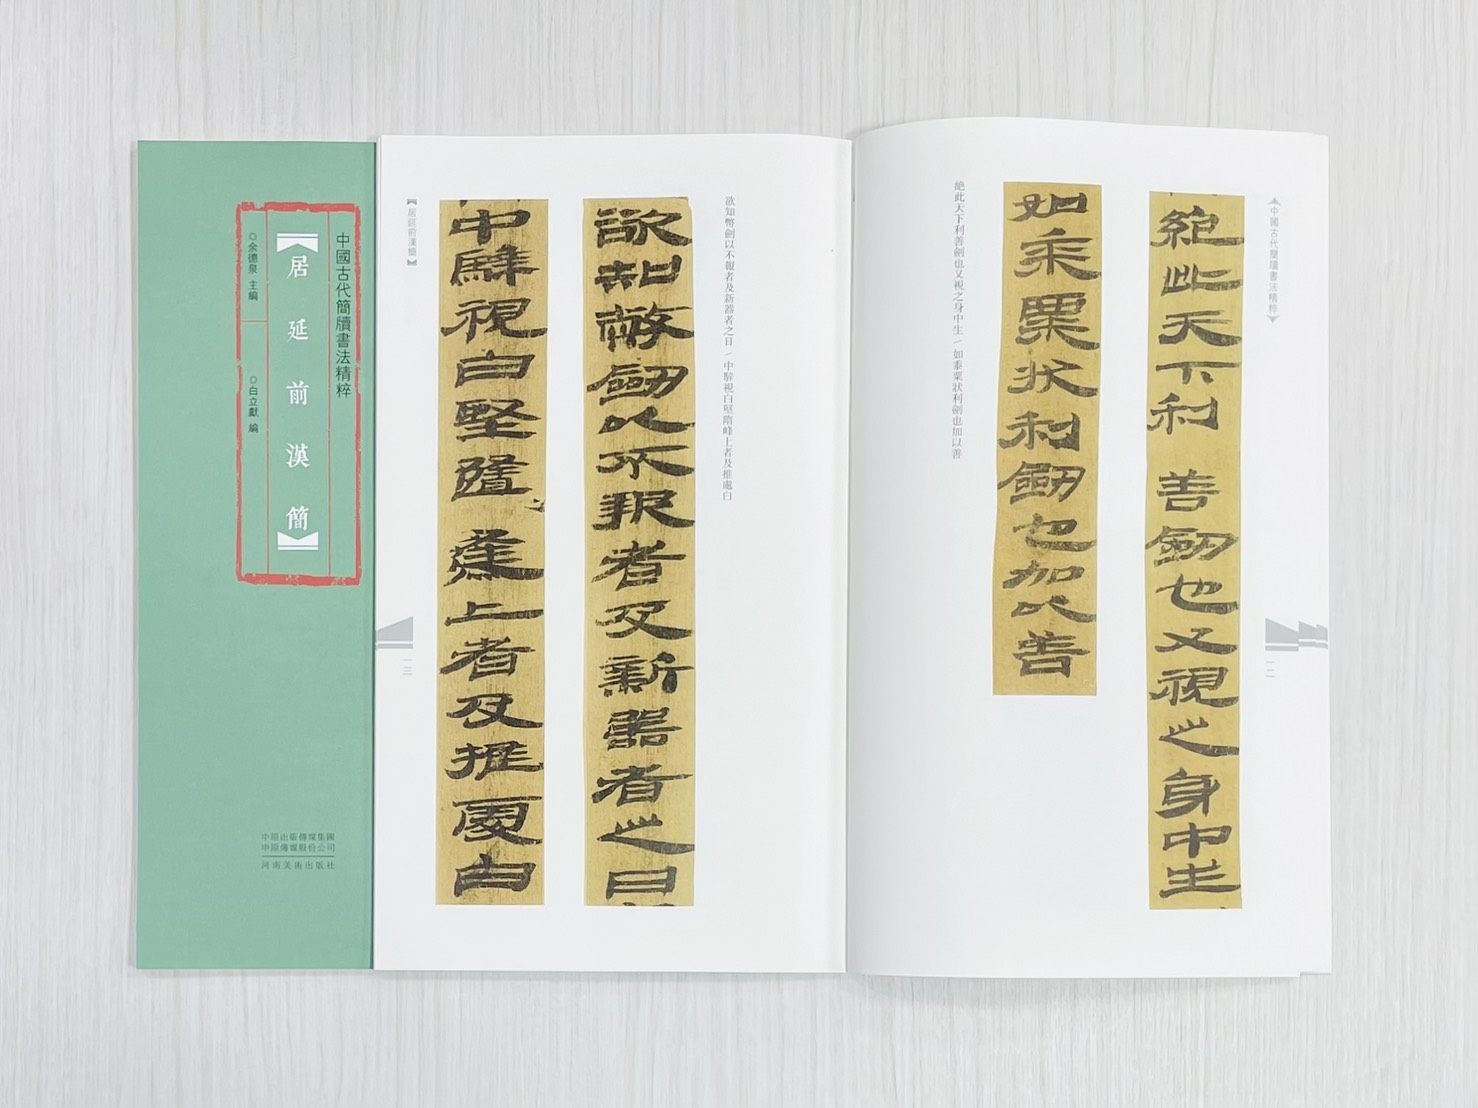 中國古代簡牘書法精粹
【居延前漢簡】
◎余德泉 主編
◎白立獻 編
中原出版傳媒集團
中原傳媒股份公司
河南美術出版社
中國古代簡牘書法精粹
一二
絕此天下利善劍也又視之身中生
如黍粟狀利劍也加以善
絕此天下利善劍也又視之身中生／如黍粟狀利劍也加以善
欲知幣劍以不報者及新器者之日／中騂視白堅隋峰上者及推處白
欲知幣劍以不報者及新器者之日
中騂視白堅隋峰上者及推處白
【居延前漢簡】
一三